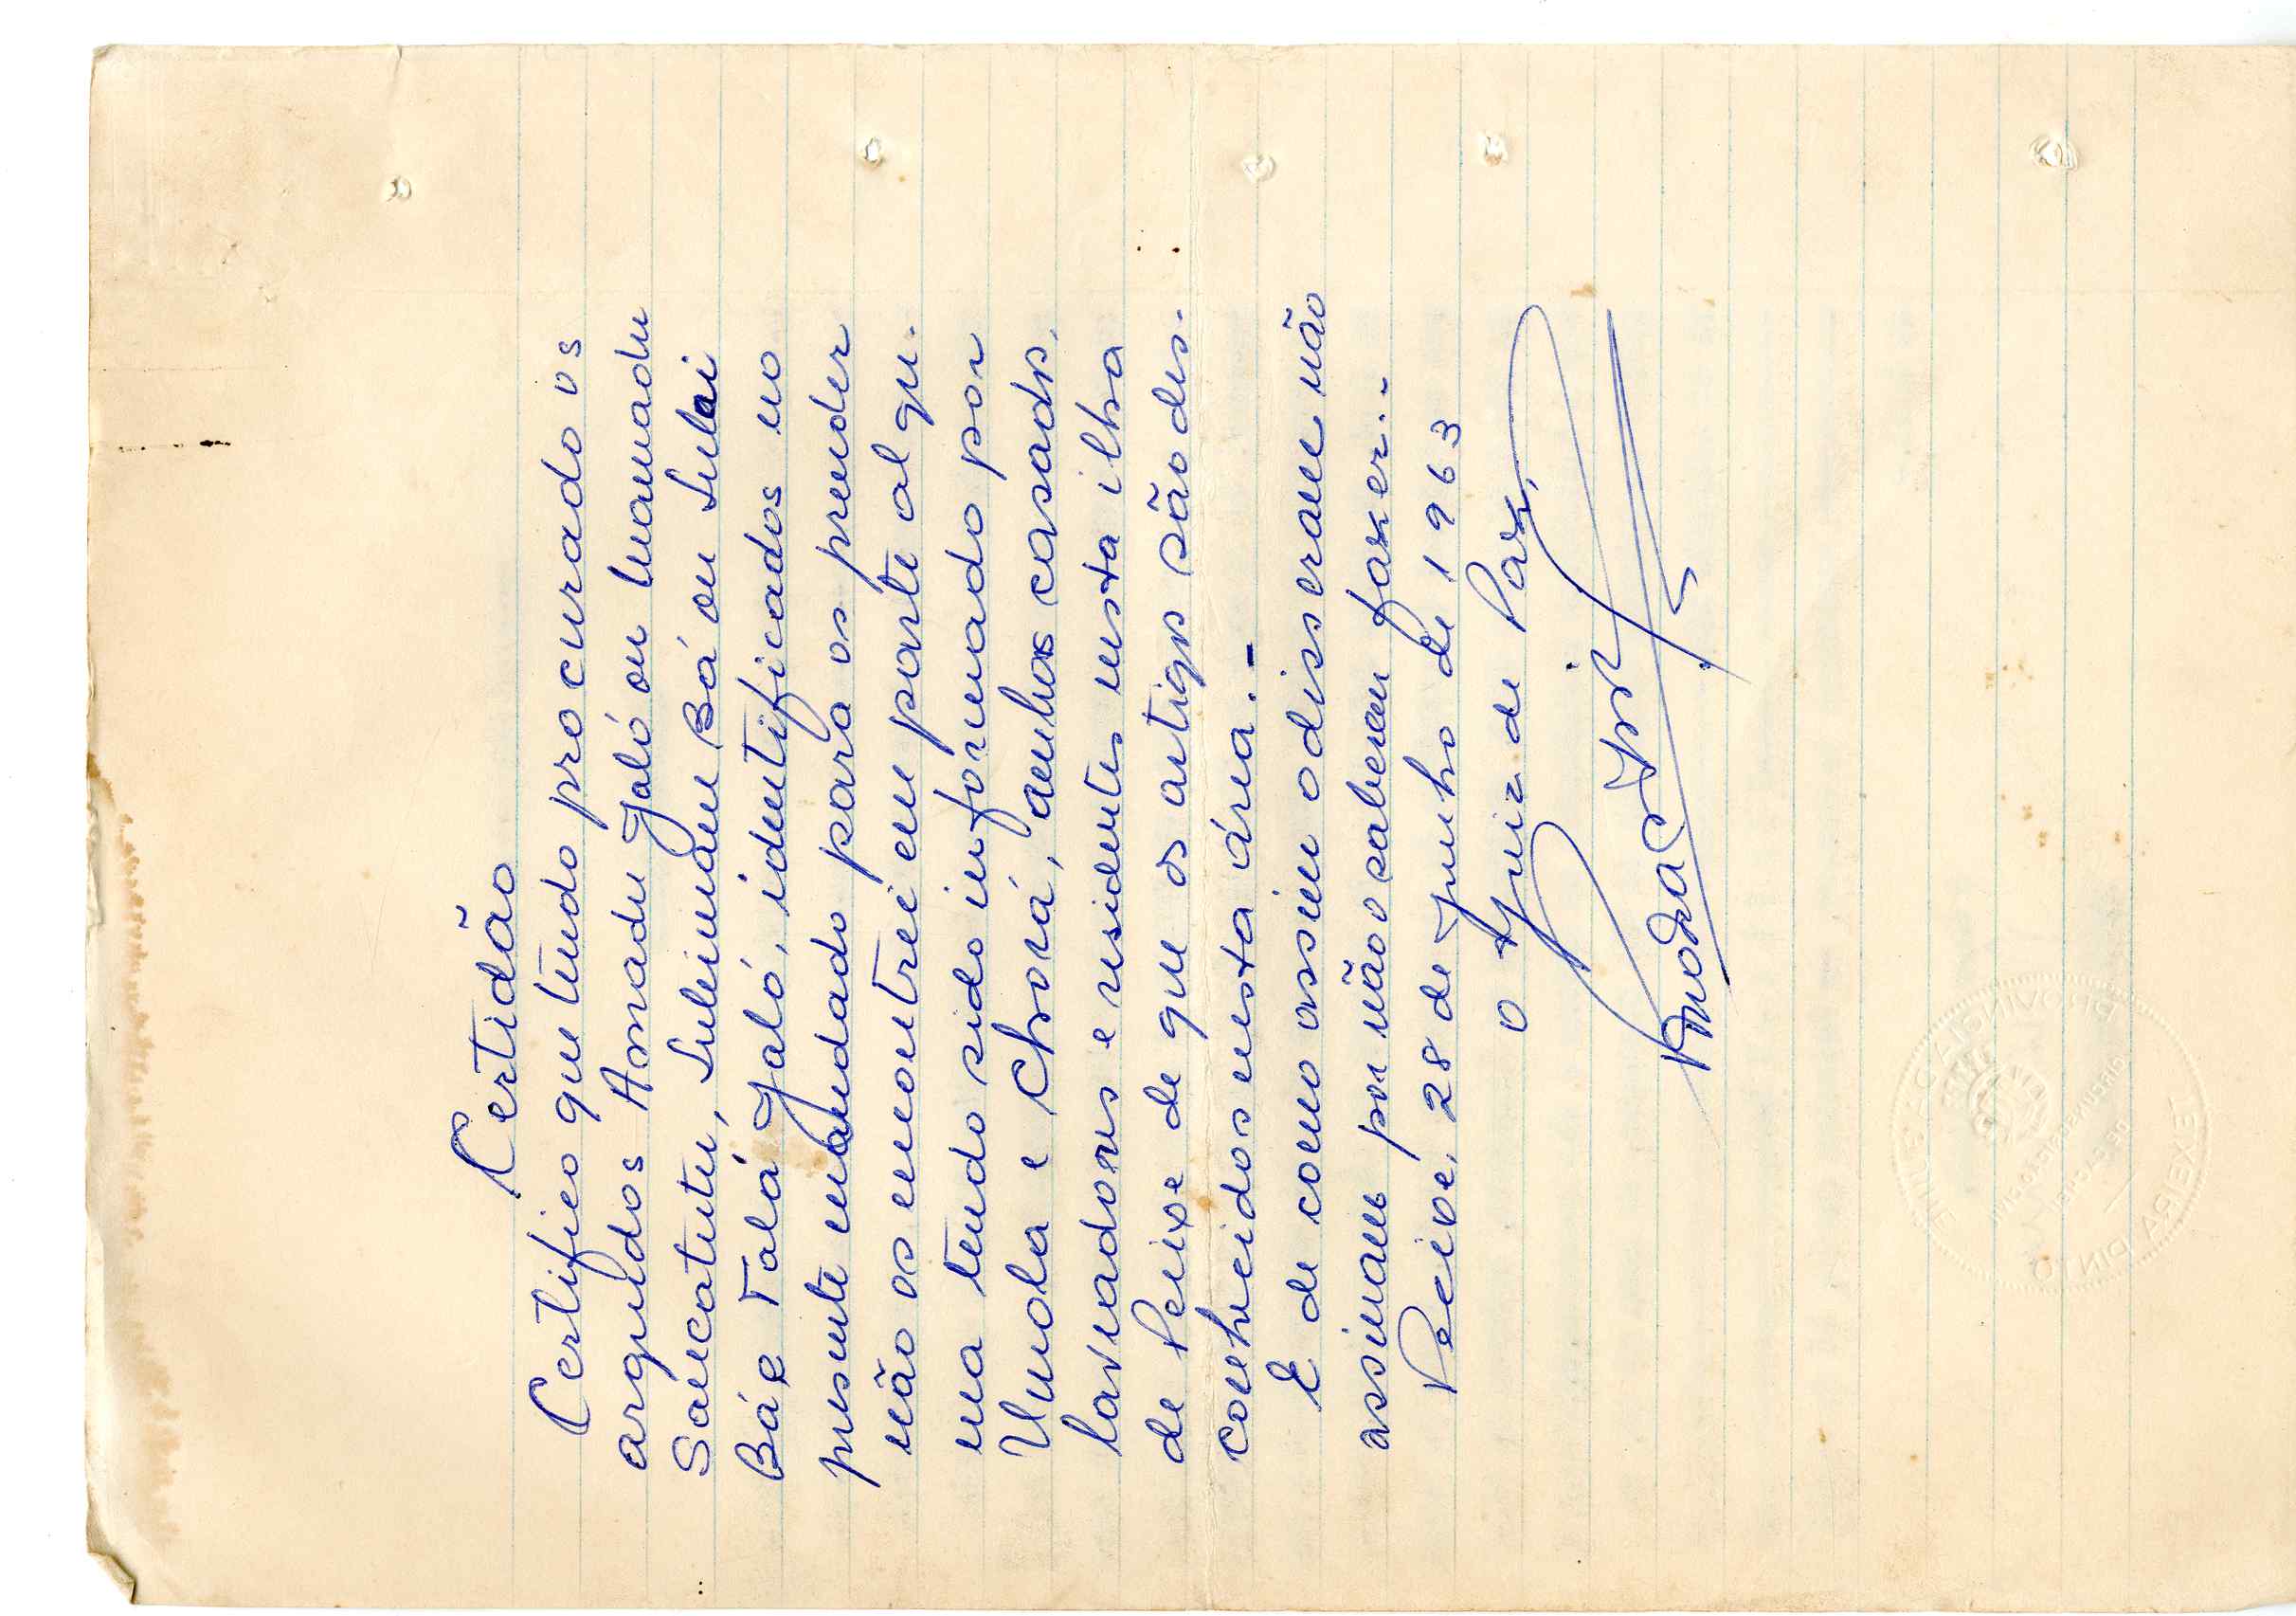 Certidão
Certifico que tendo procurado os
arguidos Amadu Jaló ou Mamadu
Sancatutu, Suleimane Bá ou Sulai
Bá e Talá Jaló, identificados no
presente mandado para os prender
não os encontrei em parte algu-
ma tendo sido informado por
Umola e Chorá, ambos casados,
lavradores e residentes nesta ilha
de Peixe de que os artigos são des-
conhecidos nesta área.-
E de como assim o disseram não
assinam por não o saberem fazer.-
Peixe, 28 de Junho de 1963
O Juiz de Paz,